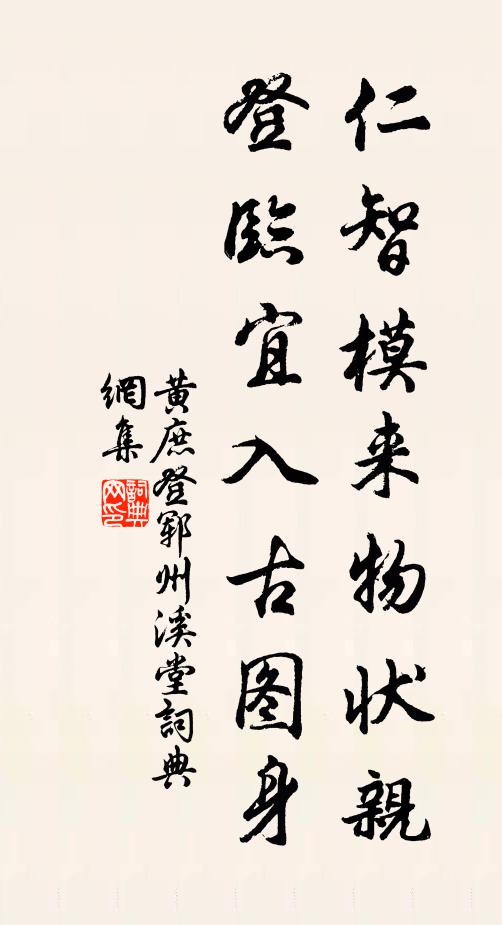 仁智模来物状親
登臨宜入古图身
黃庶登鄆州溪堂詞典
網集
詞典网印